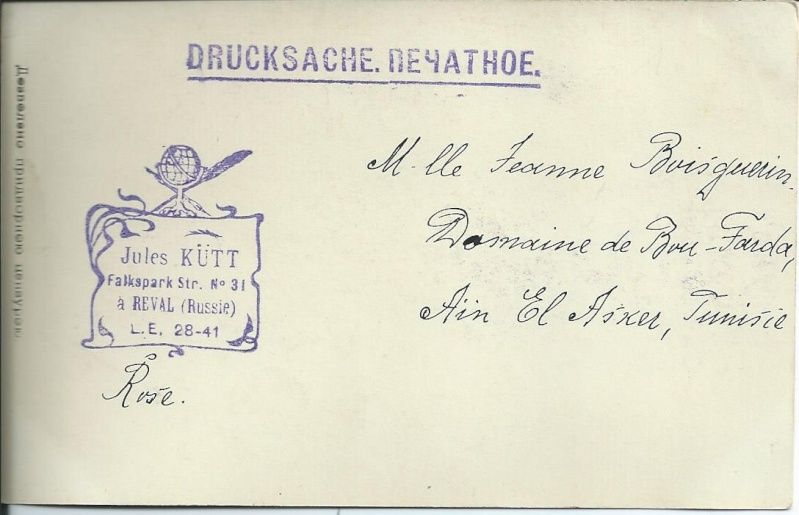 DRUCKSACHE. ПЕЧАТНОЕ.
Дозволено придворною цензурою
Jules KÜTT
Falkspark Str. № 31
à REVAL (Russie)
L.E. 28-41
Rose.
M-lle Jeanne Boisguerin
Domaine de Bou-Farda,
Ain El Asker, Tunisie